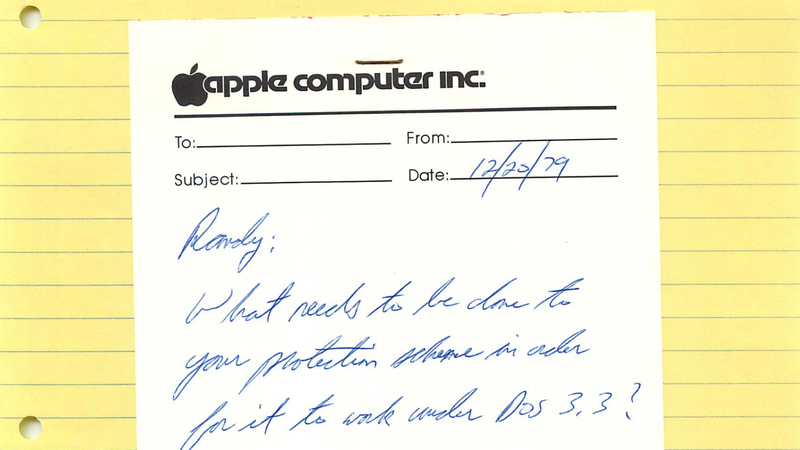 apple computer inc.
To: From:
Subject: Date: 12/20/79
Randy:
What needs to be done to
your protection scheme in order
for it to work under DOS 3.3?